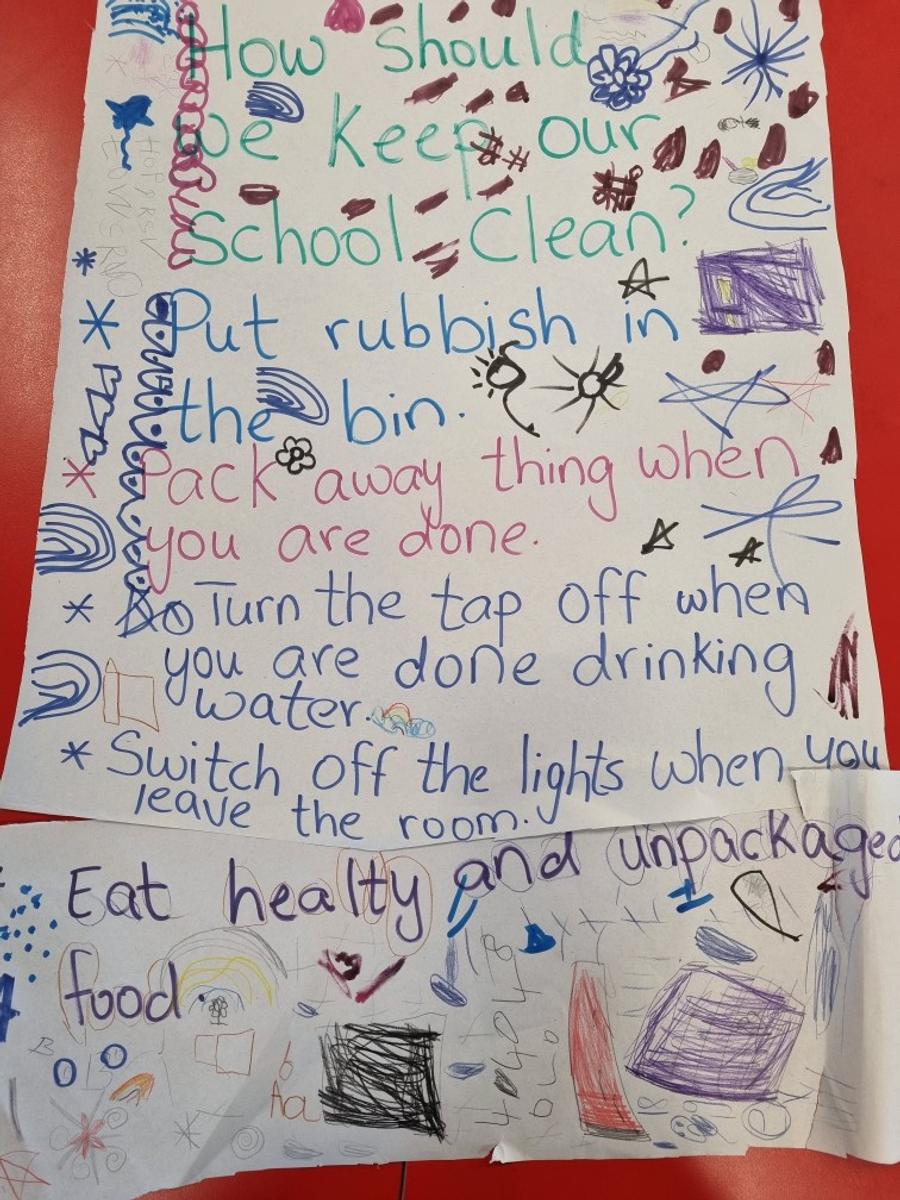 How should
we keep our
School Clean?
Put rubbish in
the bin.
Pack away thing when
you are done.
Turn the tap off when
you are done drinking
water.
* Switch off the lights when you
leave the room.
Eat healty and unpackaged
food.